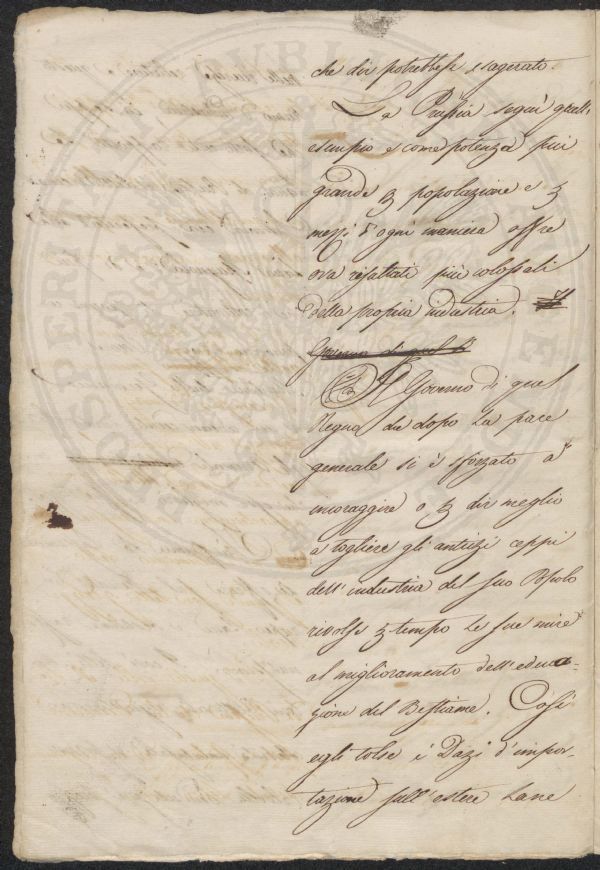 che dir potrebbesi esagerato.
La Prussia seguì quell'
esempio e come potenza più
grande  popolazione e 
mezzi d'ogni maniera offre
ora risultati più colossali
della propria industria. Il
Governo di quel R
Il Governo di quel
Regno che dopo la pace
generale si è sforzato a
incoraggire o,  dir meglio
a togliere gli antichi ceppi
dell'industria del suo Popolo
rivolse  tempo le sue mire
al miglioramento dell'educa-
zione del Bestiame. Così
egli tolse i Dazi d'impor-
tazione sull'estere Lane